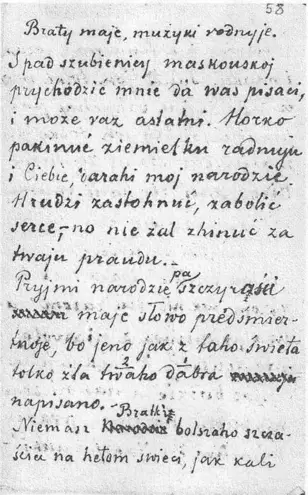 58
Braty maje, mużyki rodnyje.
Spad szubienicy maskouskoj
prychodzić mnie da was pisaci,
i może raz astatni. Horko
pakinuć ziemielku radnuju
i Ciebie, darahi moj narodzie
Hrudzi zastohnuć, zabolić
serce,– no nie żal zhinuć za
twaju praudu.–
Pryjmi narodzie pa szczyrości
maje słowo predśmier-
tnoje, bo jeno jak z taho świeta
tolko dla twaho 2 dabra 1
napisano.
Bratki
Niemasz bolszaho szcza-
ścia na hetom świeci, jak kali